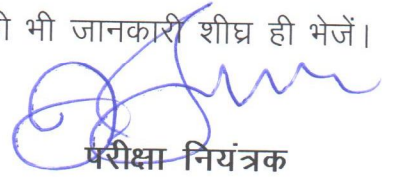 भी जानकारी शीघ्र ही भेजें।
परीक्षा नियंत्रक